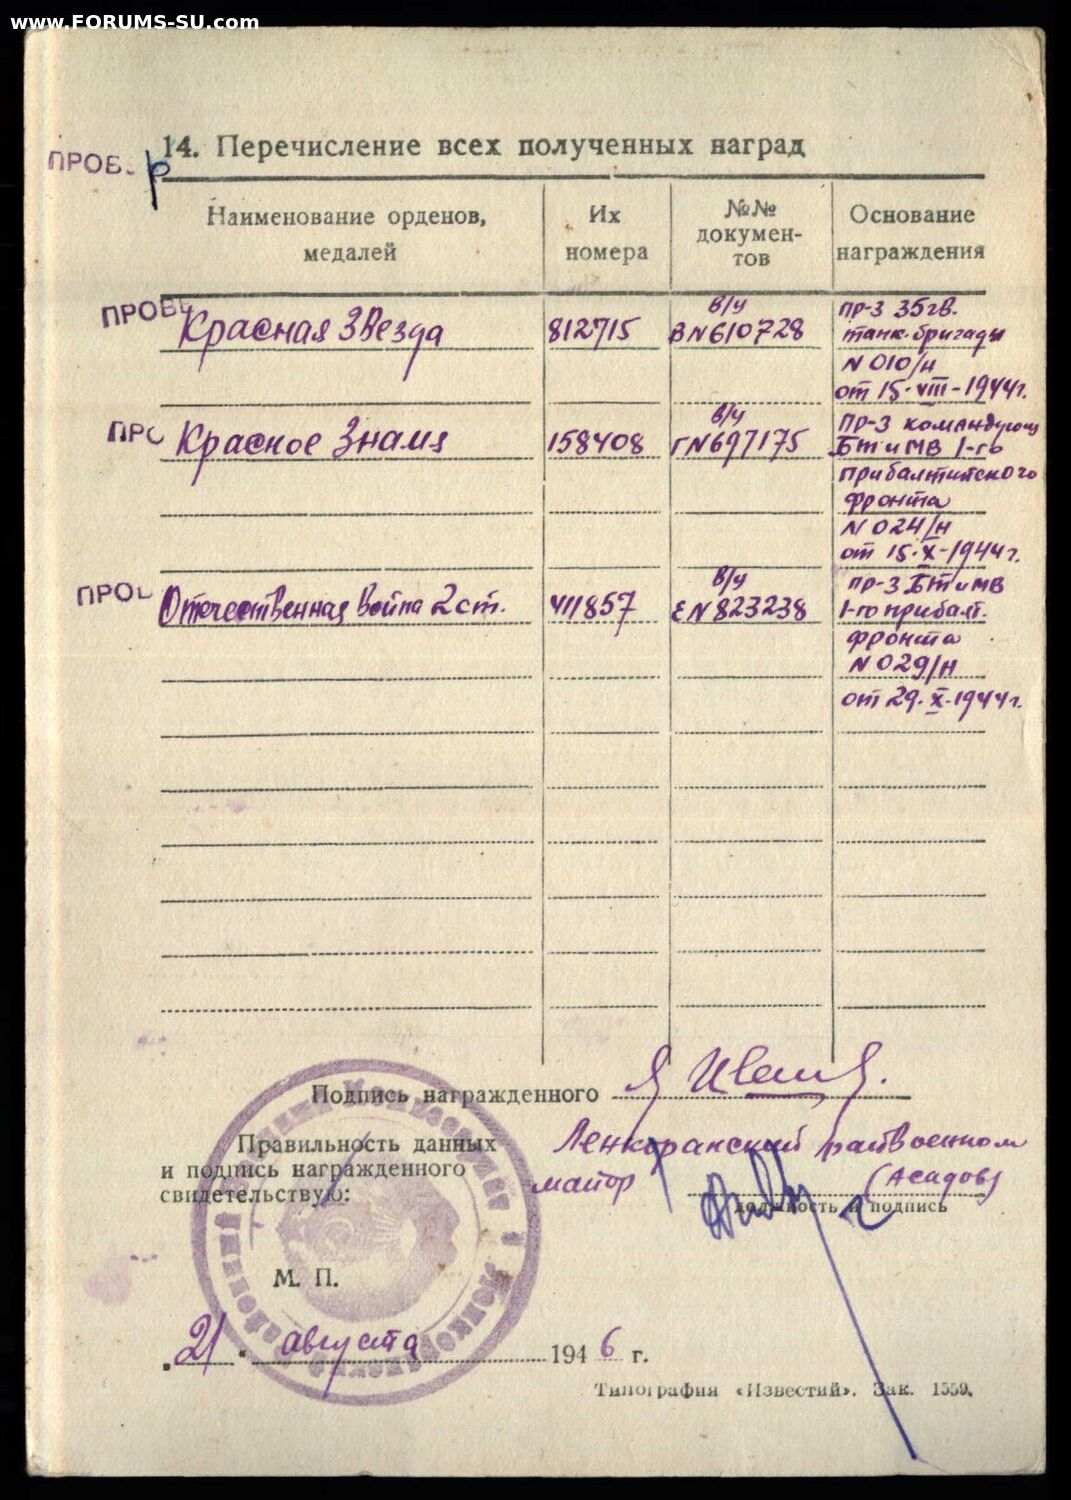 www.FORUMS-SU.com
ПРОВ.
14. Перечисление всех полученных наград
Наименование орденов, медалей
Их номера
№№ документов
Основание награждения
ПРОВЕ
Красная Звезда
812715
в/у
В N 610728
пр-з 35 гв.
танк. бригады
N 010/н
от 15-VIII-1944г.
ПРО
Красное Знамя
158408
в/у
Г N 697175
пр-з командующ
БТ и МВ 1-го
Прибалтийского
фронта
N 024/н
от 15-X-1944г.
ПРОВ
Отечественная война 2 ст.
411857
в/у
Е N 823238
пр-з БТ и МВ
1-го прибалт.
фронта
N 029/н
от 29.X-1944г.
Подпись награжденного
Правильность данных
и подпись награжденного
свидетельствую:
Ленкоранский райвоенком
майор
(Асадов)
должность и подпись
М. П.
"21" августа 1946 г.
Типография «Известий». Зак. 1559.